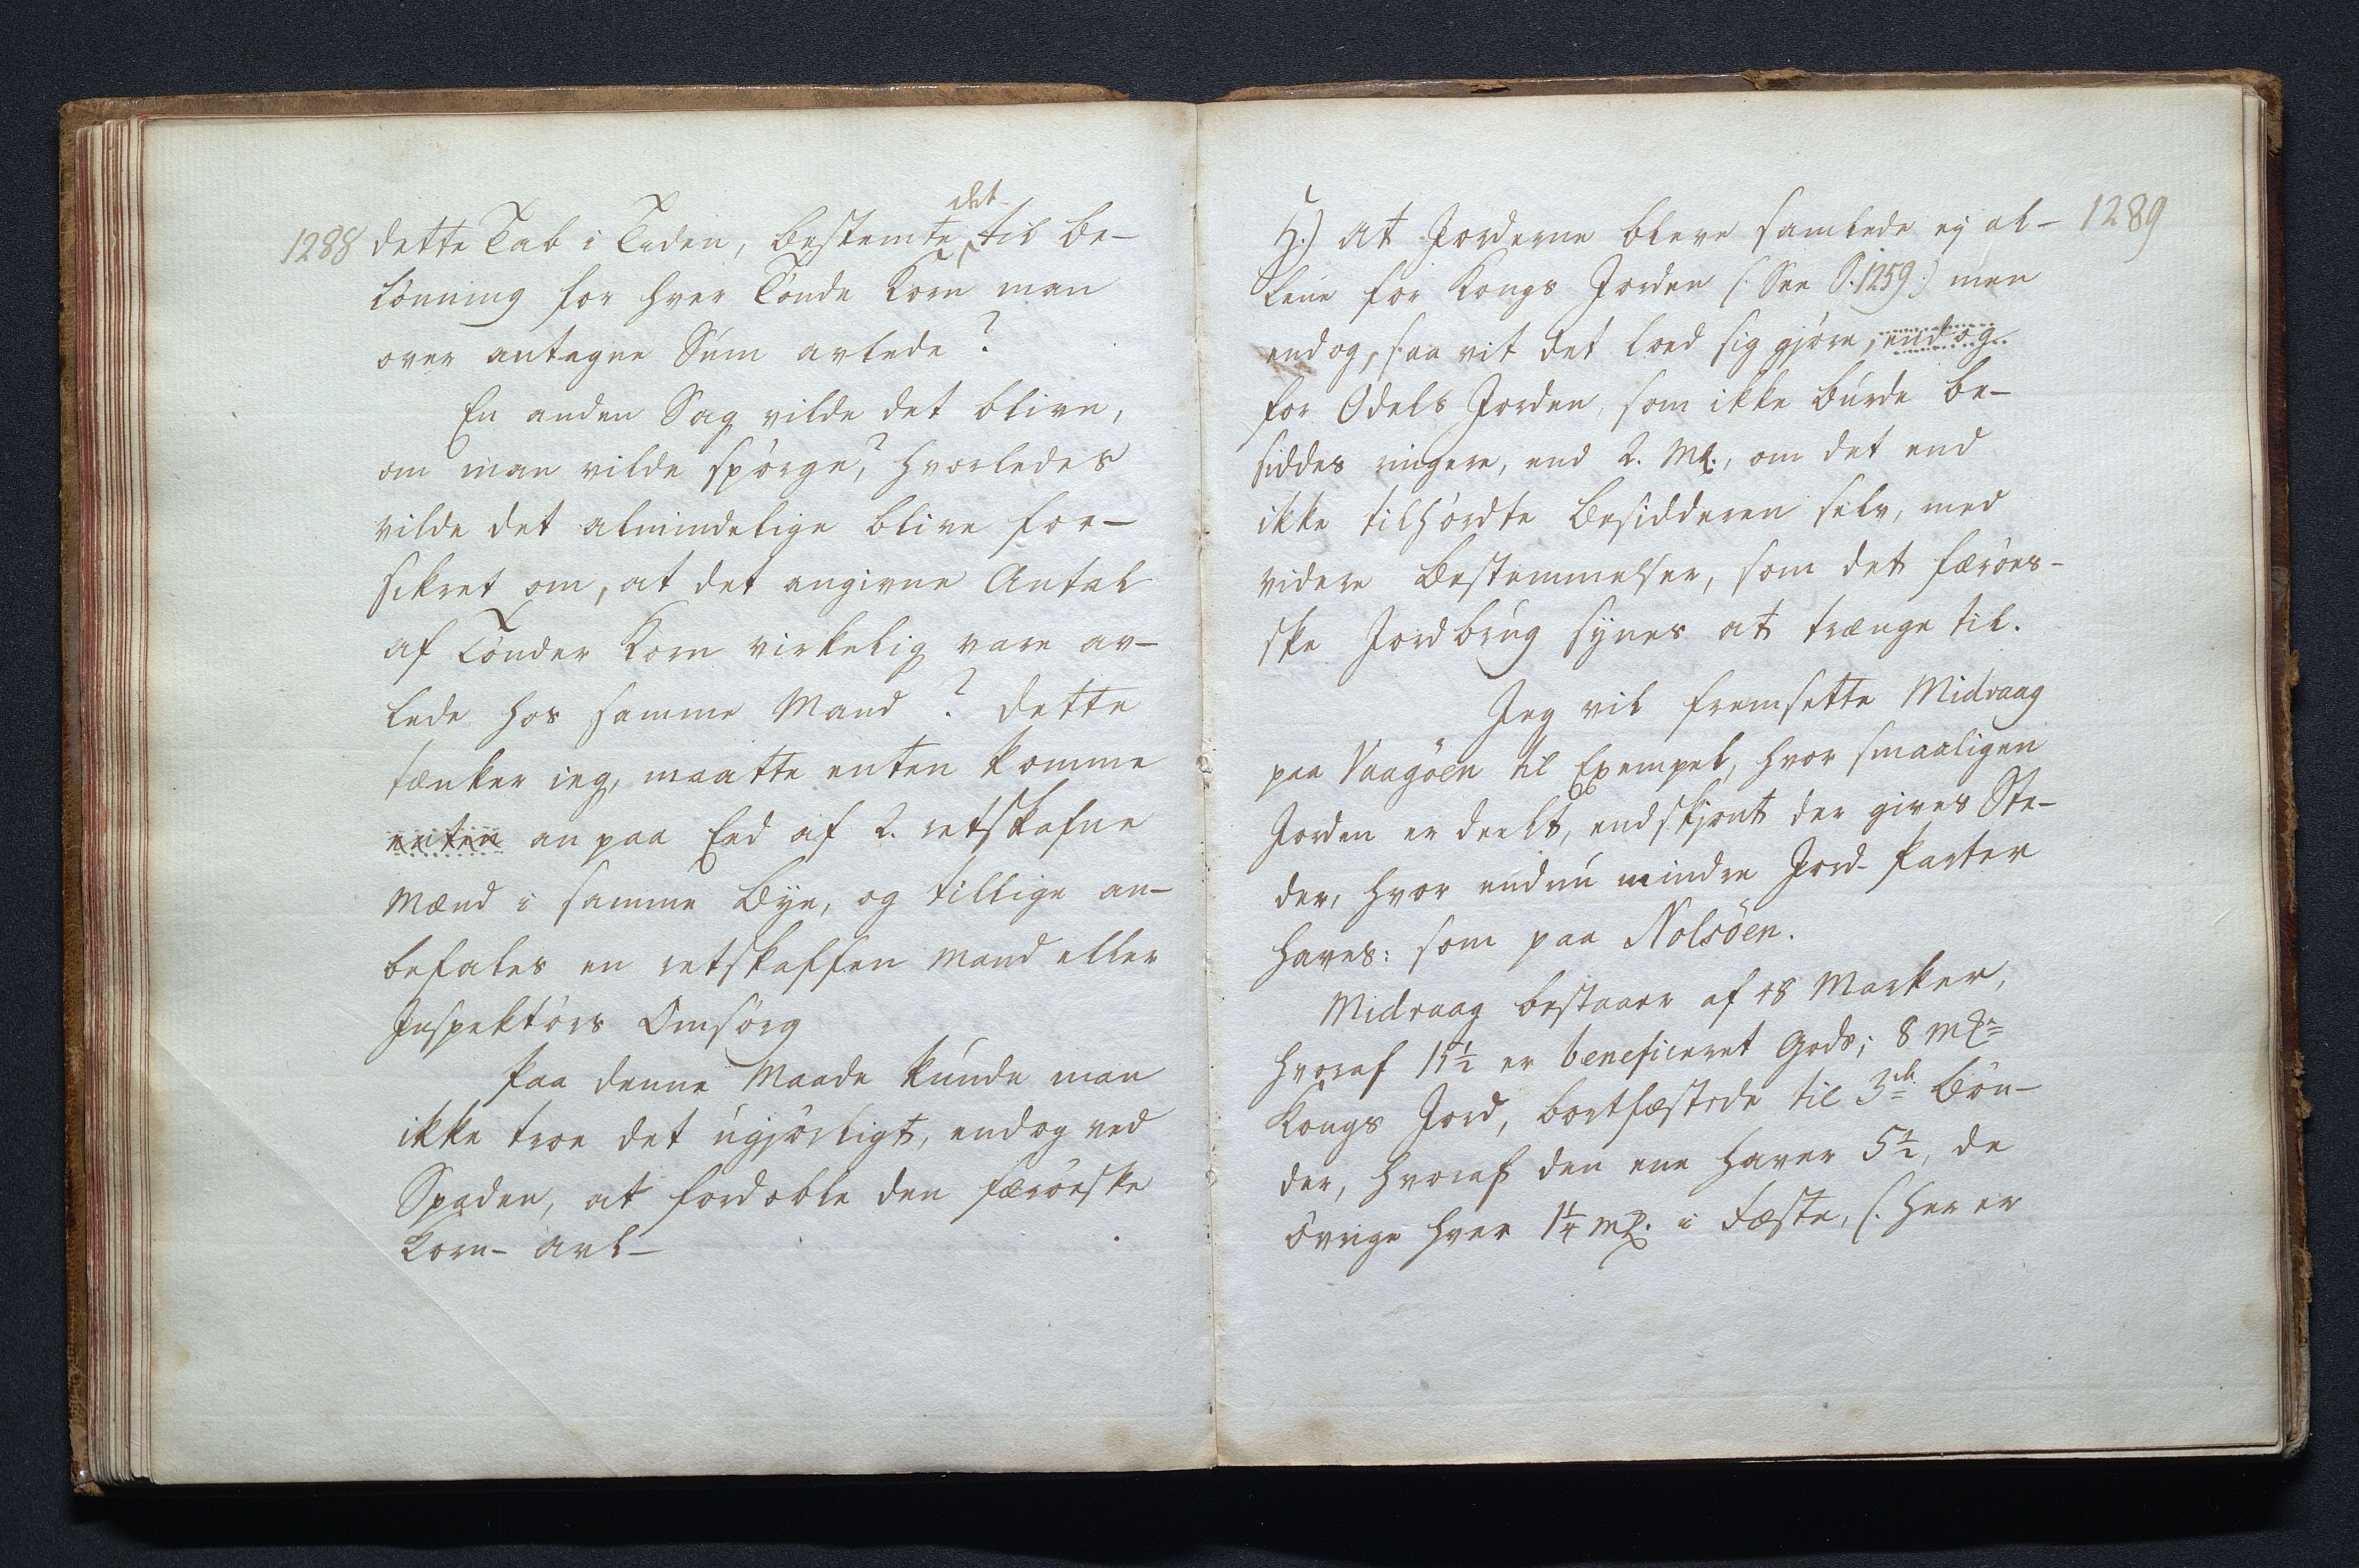 1288
dette Tab i Tiden, bestemte det til be-
lönning for hver Tönde Korn man
over antagne Sum avlede?
En anden Sag vilde det blive,
om man vilde spörge? hvorledes
vilde det almindelige blive for-
sikret om, at det angivne Antal
af Tönder Korn virkelig vare av-
lede hos samme Mand? dette
tænker ieg, maatte enten komme
enten an paa Eed af 2. retskafne
Mænd i samme Bye, og tillige an-
befales en retskaffen Mand eller
Inspektörs Omsorg
Paa denne Maade kunde man
ikke troe det ugjörligt, endog ved
Spaden, at fordoble den færöeske
Korn- avl-
1289
H.) at Jorderne bleve samlede ej al-
lene for Kongs Jorden (: See S. 1259:) men
endog, saa vit det loed sig gjöre, endog
for Odels Jorden, som ikke burde be-
siddes ringere, end 2. Mk:, om det end
ikke tilhördte Besidderen selv, med
videre Bestemmelser, som det færöes-
ske Jordbrug synes at trænge til.
Jeg vil fremsette Midvaag
paa Vaagöen til Exempel, hvor smaaligen
Jorden er deelt, endskjönt der gives Ste-
der, hvor endnu mindre Jord-Parter
haves: som paa Nolsöen.
Midvaag bestaaer af 48 Marker,
hvoraf 15½ er beneficeret Gods; 8 Mk
Kongs Jord, bortfæstede til 3de Bön-
der, hvoraf den ene haver 5½, de
övrige hver 1¼ Mk. i Fæste, (: her er